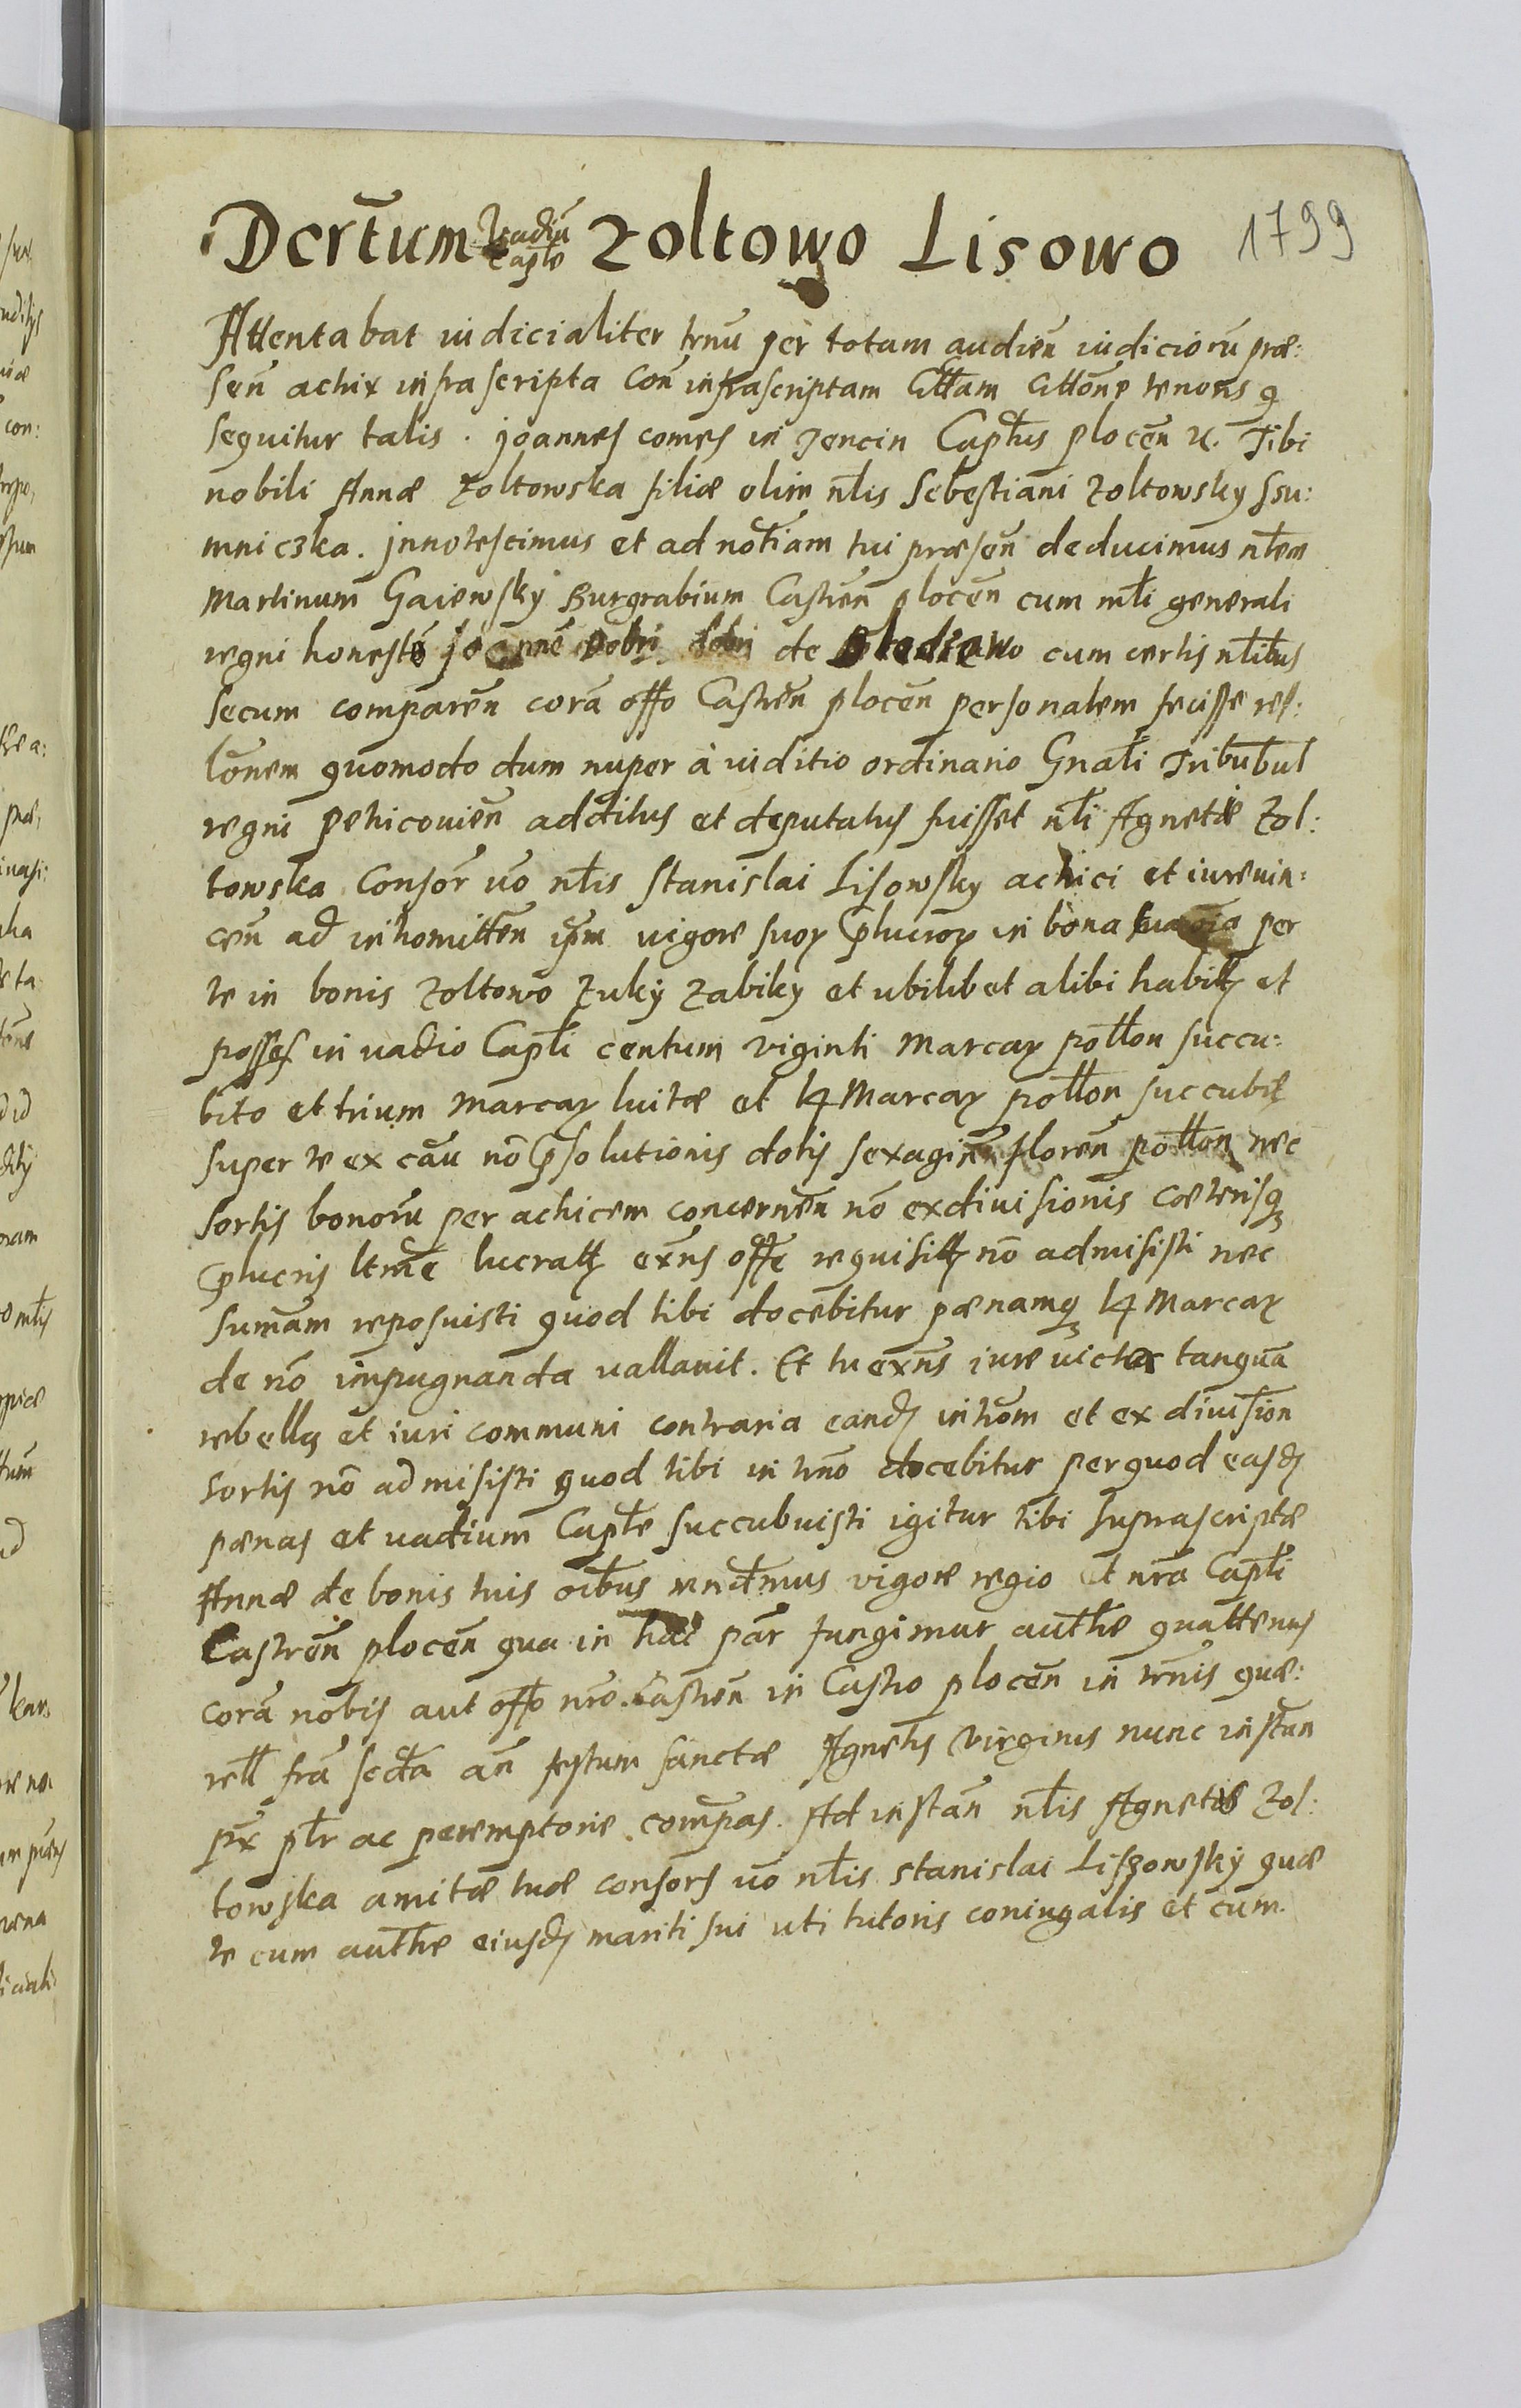 Dcrtum Vadiu Caple Zoltowo Lisowo 1799
Attentabat iudicialiter trnu per totam audien iudicioru præ:
sen actrix infrascripta Con infrascriptam Cittam Cittone tenoris q
sequitur talis. Joannes comes in Tencin Captus plocen &. Tibi
nobili Annæ Zoltowska filiæ olim nlis Sebestiani Zoltowsky Ssu:
mniczka. Innotescimus et ad notiam tui præsen deducimus nlem
Martinum Gaiewsky Burgrabium Castren plocen cum mli generali
regni honesto Joanne Dobri de cum certis nlibus
secum comparen cora offo Castren plocen personalem fecisse rel:
lonem quomodo dum nuper à iuditio ordinario Gnali Tribubul
regni petricouien additus et deputatus fuisset nli Agnetæ Zol:
towska Consor uo nlis Stanislai Lisowsky actrici et iureuin:
cen ad intromitten ipm uigore suor plucror in bona per
te in bonis Zoltowo Zuky Zabiky et ubilibet alibi habit et
posses in uadio Capli centum viginti Marcar pollon succu:
bito et trium Marcar luitæ et 14 Marcar pollon succubit
super te ex cau no psolutionis dotis sexaginta floren pollon nec
sortis bonoru per actricem concernen no exdiuisionis cæterisq
plucris ltme lucratt exns offe requisitt no admisisti nec
sumam reposuisti quod tibi docebitur pænamq 14 Marcar
de no impugnanda uallauit. Et tu exns iure uicta tanqua
rebellis et iuri communi contraria eand introm et ex diuision
sortis no admisisti quod tibi in trno docebitur perquod easd
pænas et uadium Caple succubuisti igitur tibi suprascriptæ
Annæ de bonis tuis oibus mndmus vigore regio et nra Capli
Castren plocen qua in hac par fungimur authe quattenus
cora nobis aut offo nro Castren in Castro plocen in trnis quæ:
rell fra secda an festum sanctæ Agnetis Virginis nunc instan
px plr ac peremptorie compas. Ad instan nlis Agnetis Zol:
towska amitæ tuæ consors uo nlis Stanislai Liszowsky quæ
te cum authe eiusd mariti sui uti tutoris coniugalis et cum